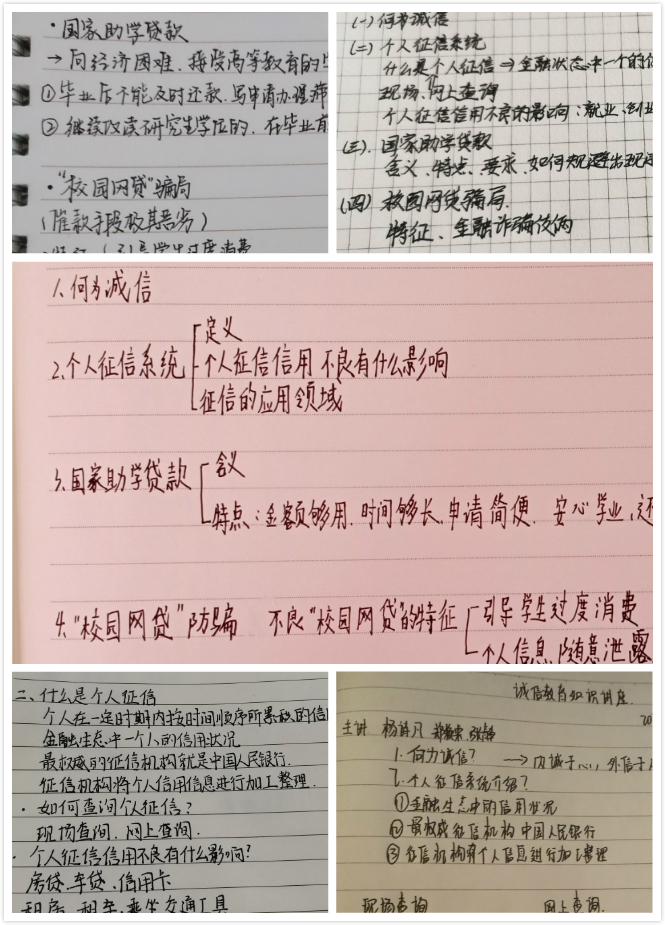 ·国家助学贷款
→向经济困难、接受高等教育的
①毕业后不能及时还款,写申请办理
②继续攻读研究生学位的,在毕业前
·"校园网贷"骗局
(催款手段极其恶劣)
(一)何为诚信
(二)个人征信系统
什么是个人征信⇒金融状态中一个的信
现场、网上查询
个人征信信用不良的影响:就业、创业
(三).国家助学贷款
含义、特点、要求、如何规避出现
(四)校园网贷骗局.
特征、金融诈骗伎俩
1.何为诚信
2.个人征信系统
定义
个人征信信用不良有什么影响
征信的应用领域
3.国家助学贷款
含义
特点:金额够用.时间够长.申请简便.安心学业,还
4."校园网贷"防骗 不良"校园网贷"的特征
引导学生过度消费
个人信息随意泄露
二、什么是个人征信
个人在一定时期内按时间顺序所累积的信
金融生态中一个人的信用状况
最权威的征信机构就是中国人民银行.
征信机构将个人信用信息进行加工整理.
·如何查询个人征信?
现场查询、网上查询.
·个人征信信用不良有什么影响?
房贷、车贷、信用卡
租房、租车、乘坐交通工具
诚信教育知识讲座.
主讲
1.何为诚信? →内诚于心,外信于人
2.个人征信系统介绍?
①金融生态中的信用状况
②最权威征信机构中国人民银行
③征信机构将个人信息进行加工整理
现场查询 网上查询.